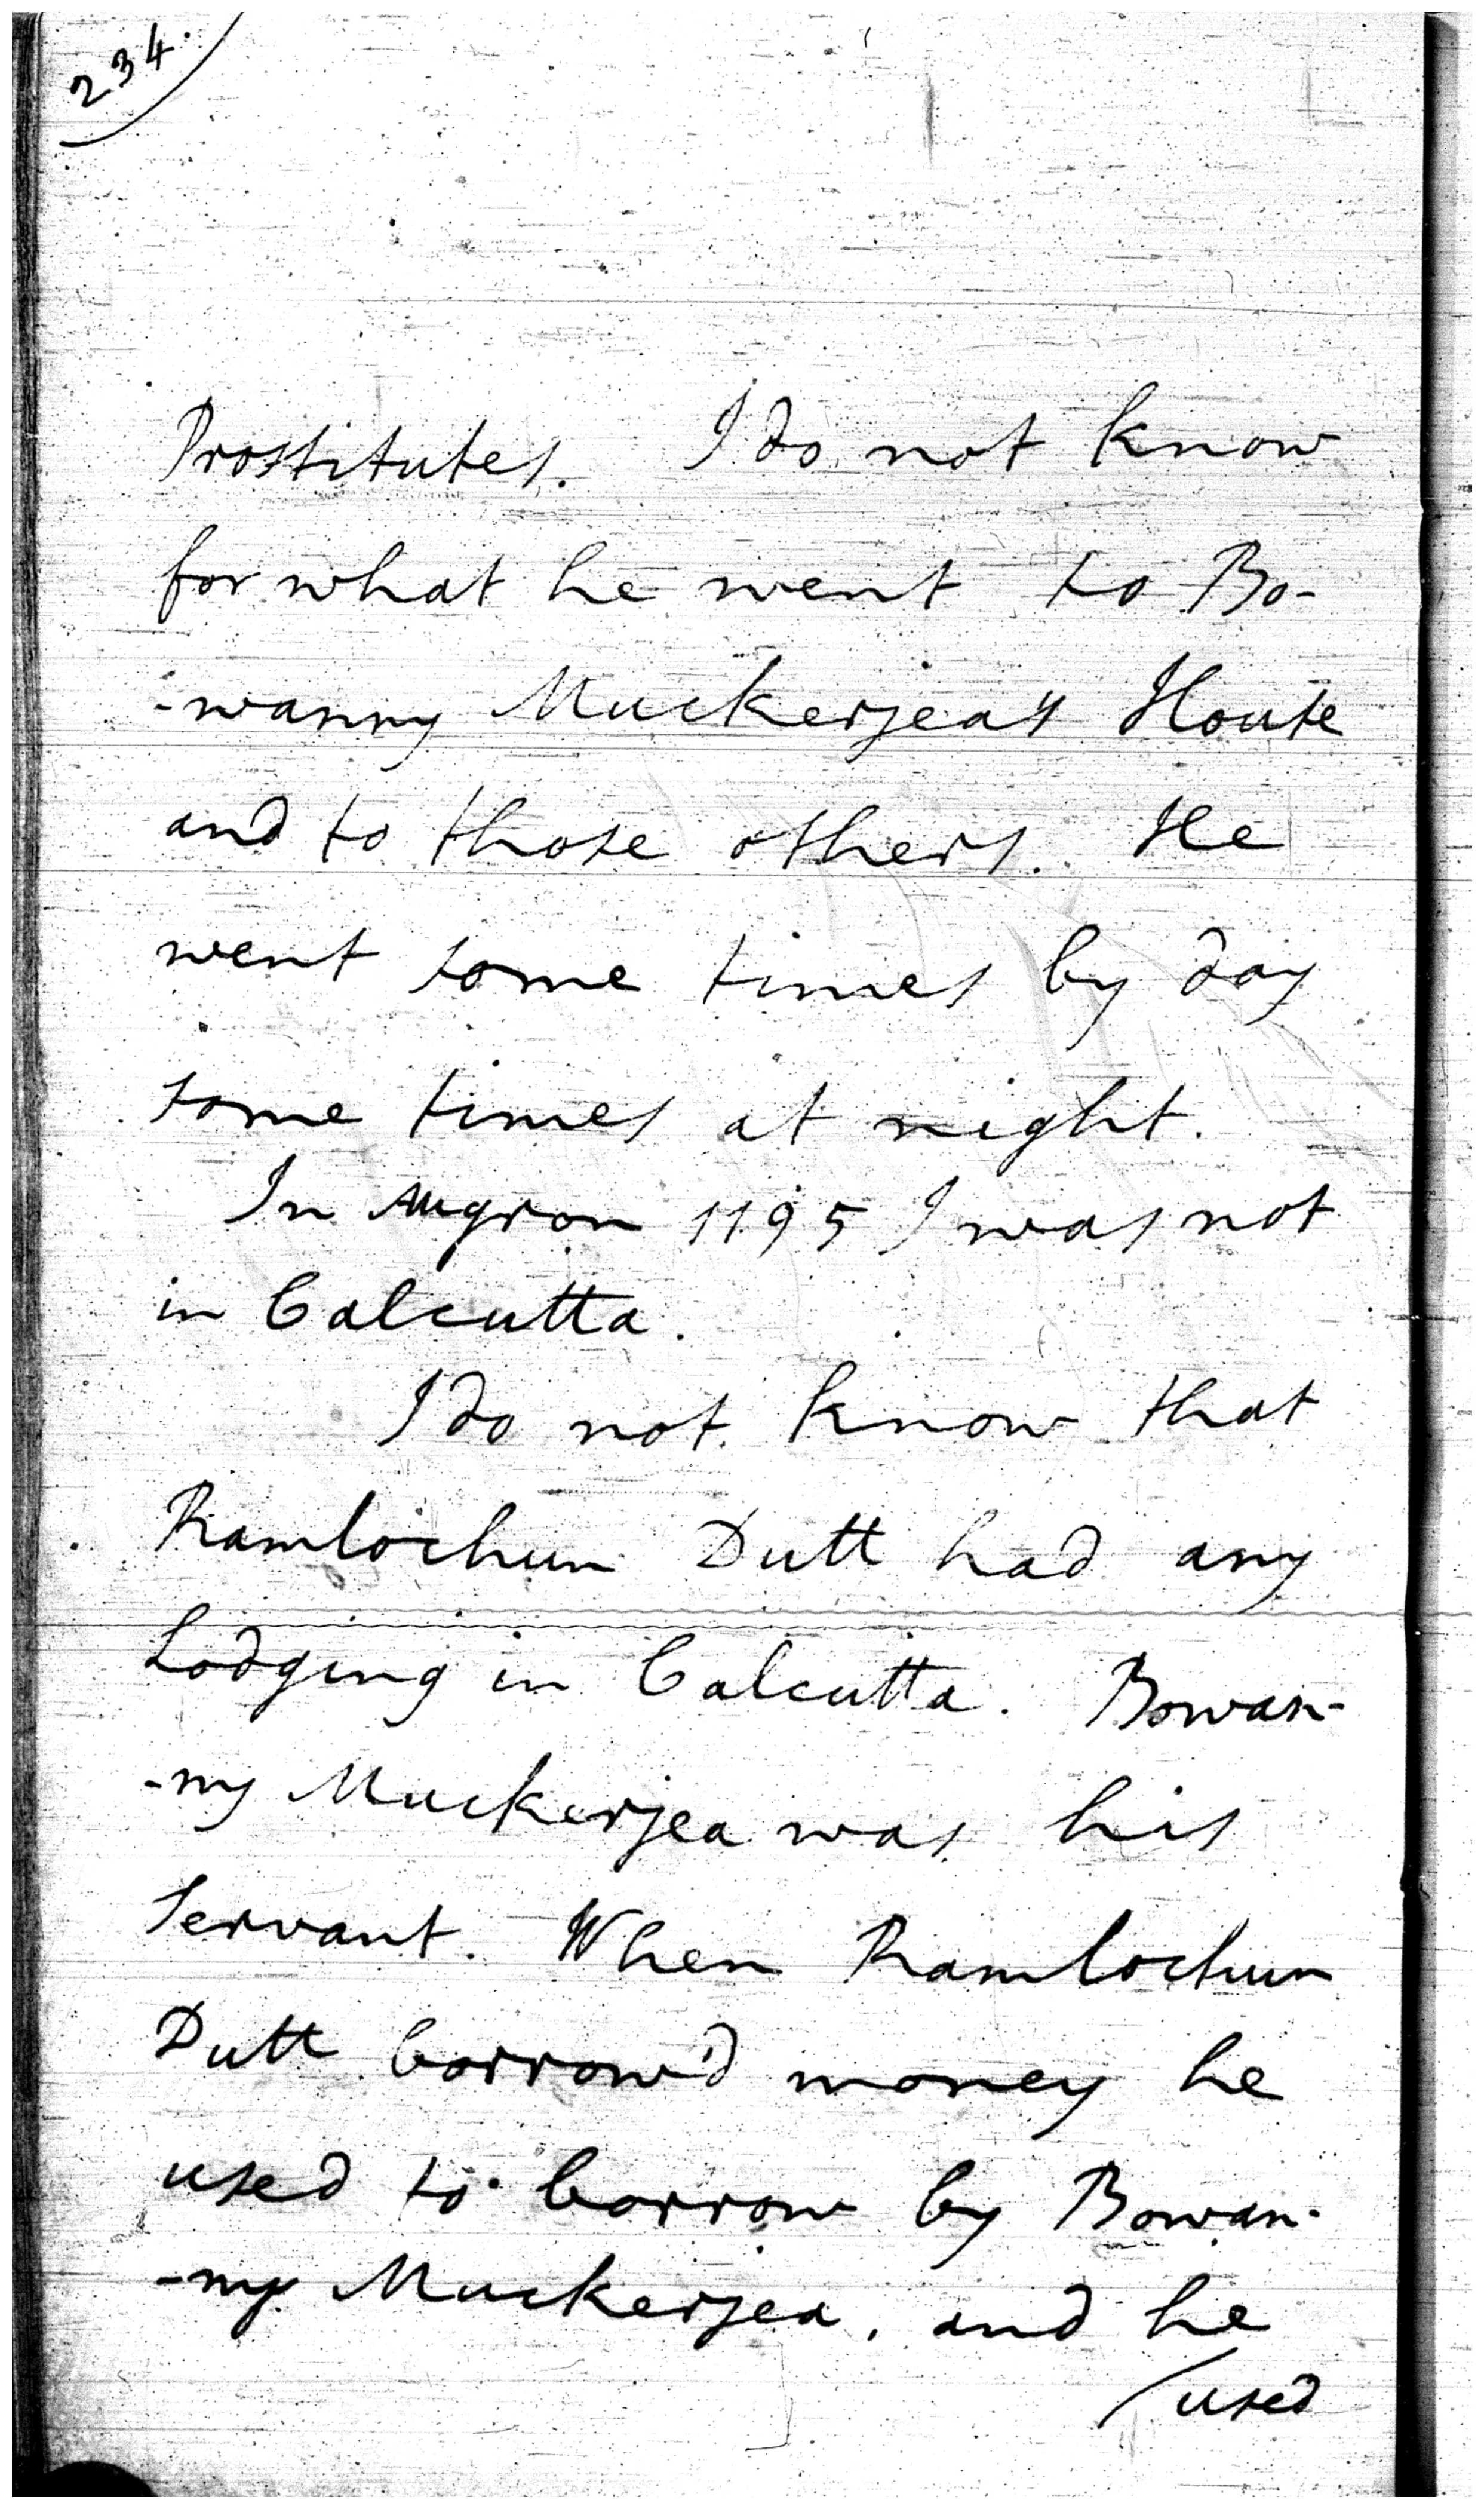 234.
Prostitutes. I do not know
for what he went to Bo-
-wanny Muckerjea's House
and to those others. He
went some times by day
some times at night.
In Augron 1195 I was not
in Calcutta.
I do not know that
Ramlochun Dutt had any
Lodging in Calcutta. Bowan-
-ny Muckerjea was his
Servant. When Ramlochun
Dutt borrow'd money he
used to borrow by Bowan-
-ny Muckerjea, and he
/used